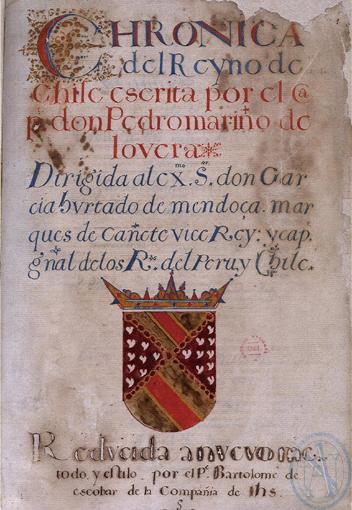 CHRONICA
del Reyno de
Chile escrita por el c@
p. don Pedro mariño de
lovera
Dirigida al ex.mo S.or don Gar
cia hurtado de mendoça. mar
ques de cañete vice Rey: y cap.
g̃nal de los R.s del Peru, y Chile.
Reducida a nuevo me
todo, y estilo. por el P.e Bartolome de
escobar de la Compañia de Ihs.